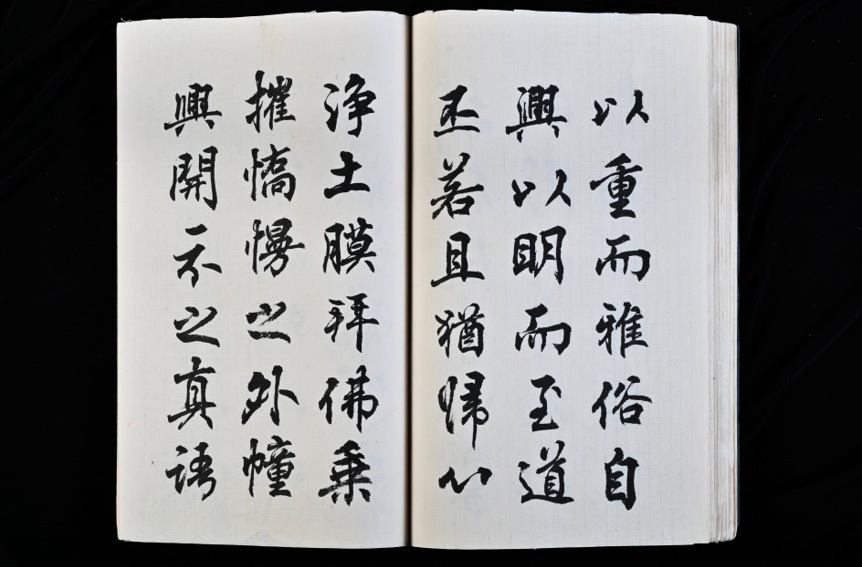 以重而雅俗自
興以明而至道
丕若且猶歸心
淨土膜拜佛乗
摧憍慢之外幢
興開示之真語